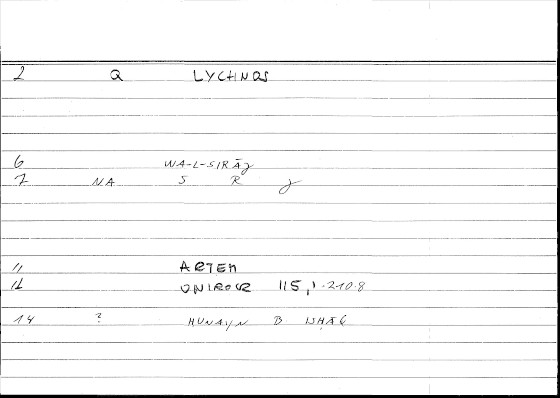 2 Q LYCHNOS
6 WA-L-SIRĀǧ
7 NA S R ǧ
11 ARTEM
12 ONIROCR 115,1-210.8
14 ? HUNAYN B ISHĀQ